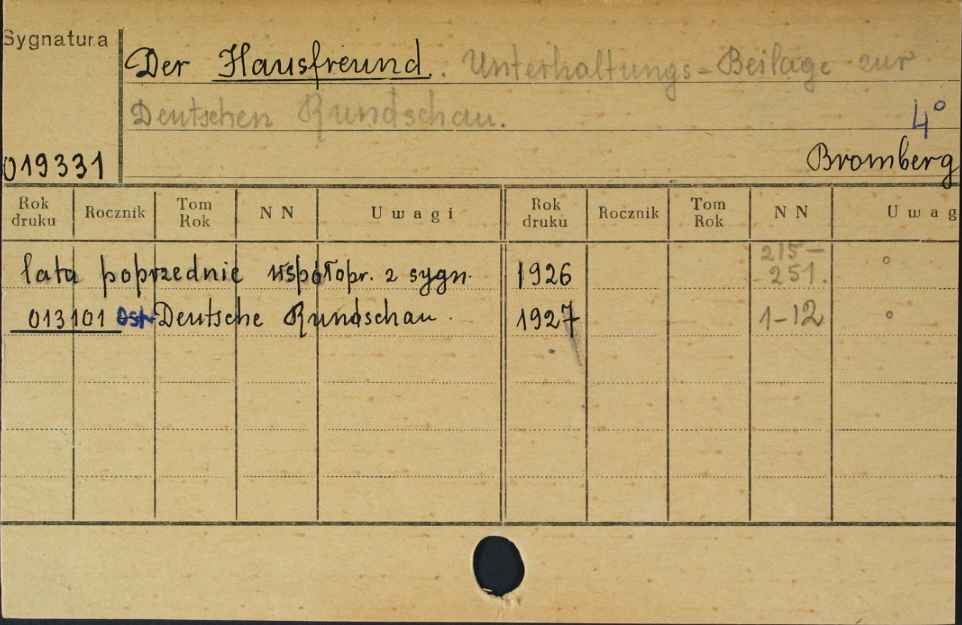 Sygnatura
Der Hausfreund. Unterhaltungs-Beilage zur
Deutschen Rundschau.
4°
019331
Bromberg
Rok druku Rocznik Tom Rok N N Uwagi Rok druku Rocznik Tom Rok N N Uwag
lata poprzednie współopr. z sygn. 1926 215-251. °
013101 Deutsche Rundschau. 1927 1-12 °